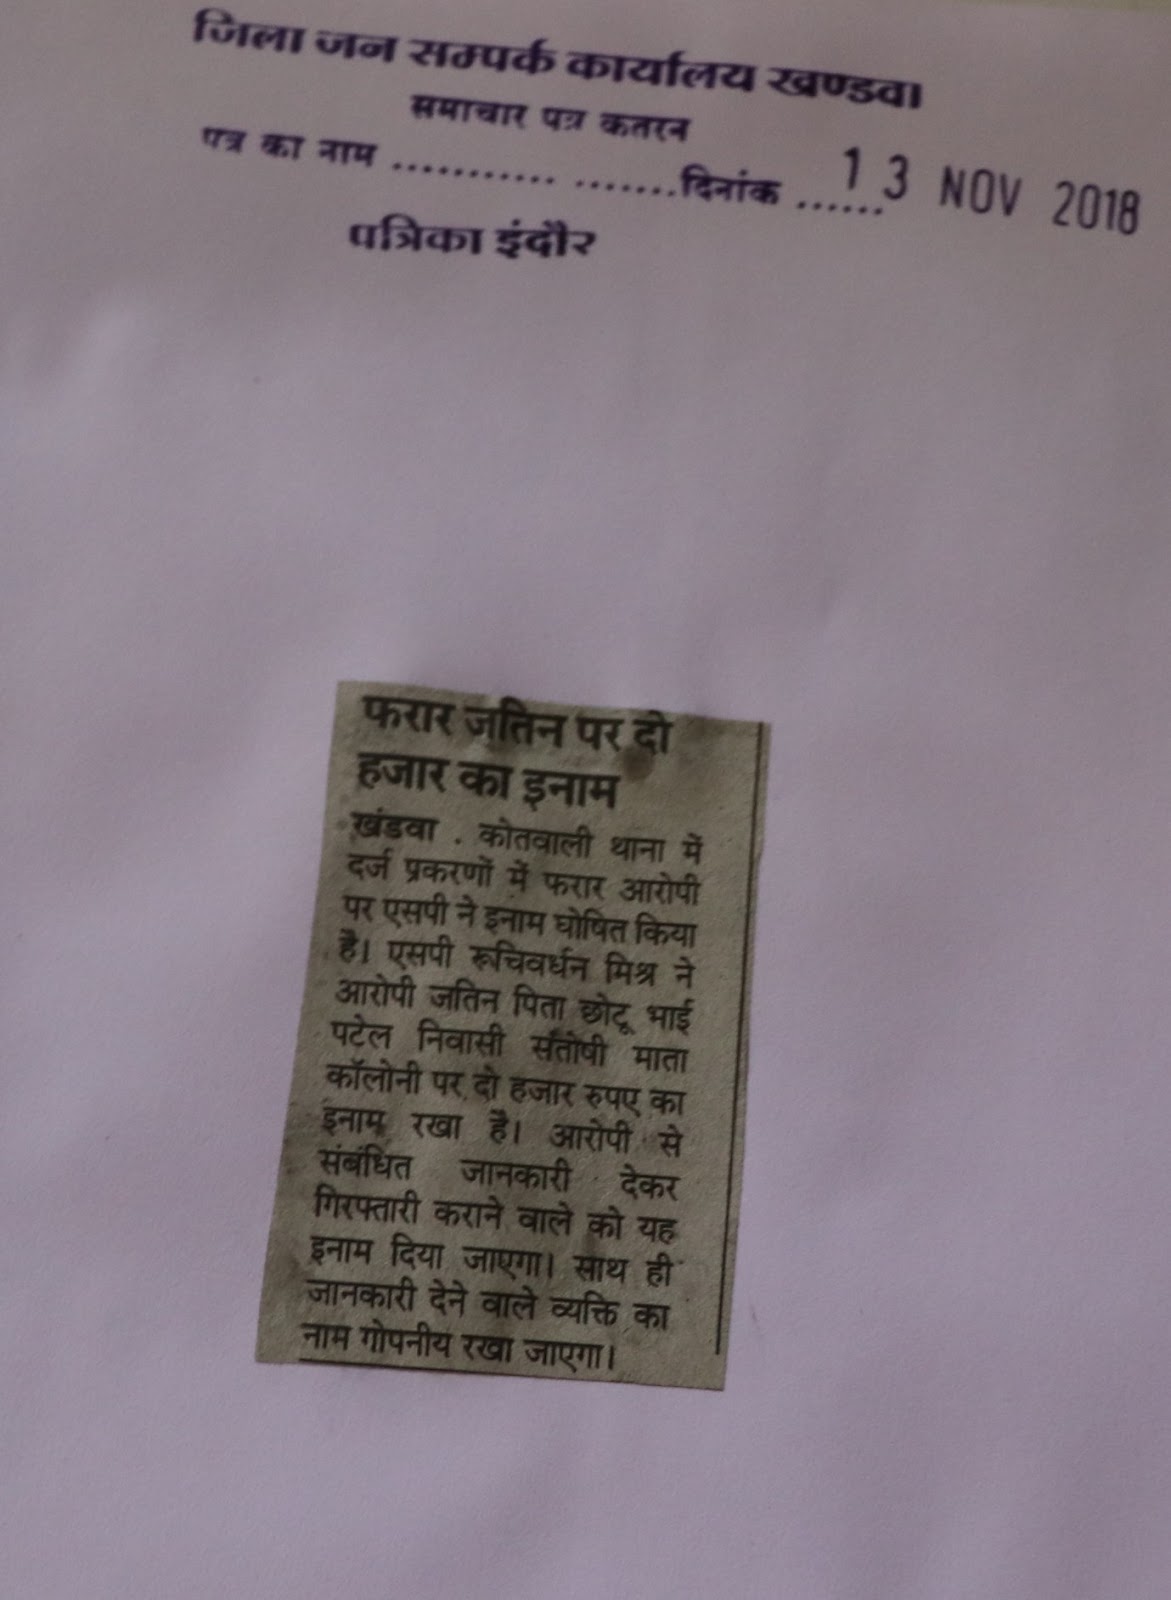 जिला जन सम्पर्क कार्यालय खण्डवा
समाचार पत्र कतरन
पत्र का नाम ........... .......दिनांक ...... 13 NOV 2018
पत्रिका इंदौर
फरार जतिन पर दो
हजार का इनाम
खंडवा . कोतवाली थाना में
दर्ज प्रकरणों में फरार आरोपी
पर एसपी ने इनाम घोषित किया
है। एसपी रूचिवर्धन मिश्र ने
आरोपी जतिन पिता छोटू भाई
पटेल निवासी संतोषी माता
कॉलोनी पर दो हजार रुपए का
इनाम रखा है। आरोपी से
संबंधित जानकारी देकर
गिरफ्तारी कराने वाले को यह
इनाम दिया जाएगा। साथ ही
जानकारी देने वाले व्यक्ति का
नाम गोपनीय रखा जाएगा।